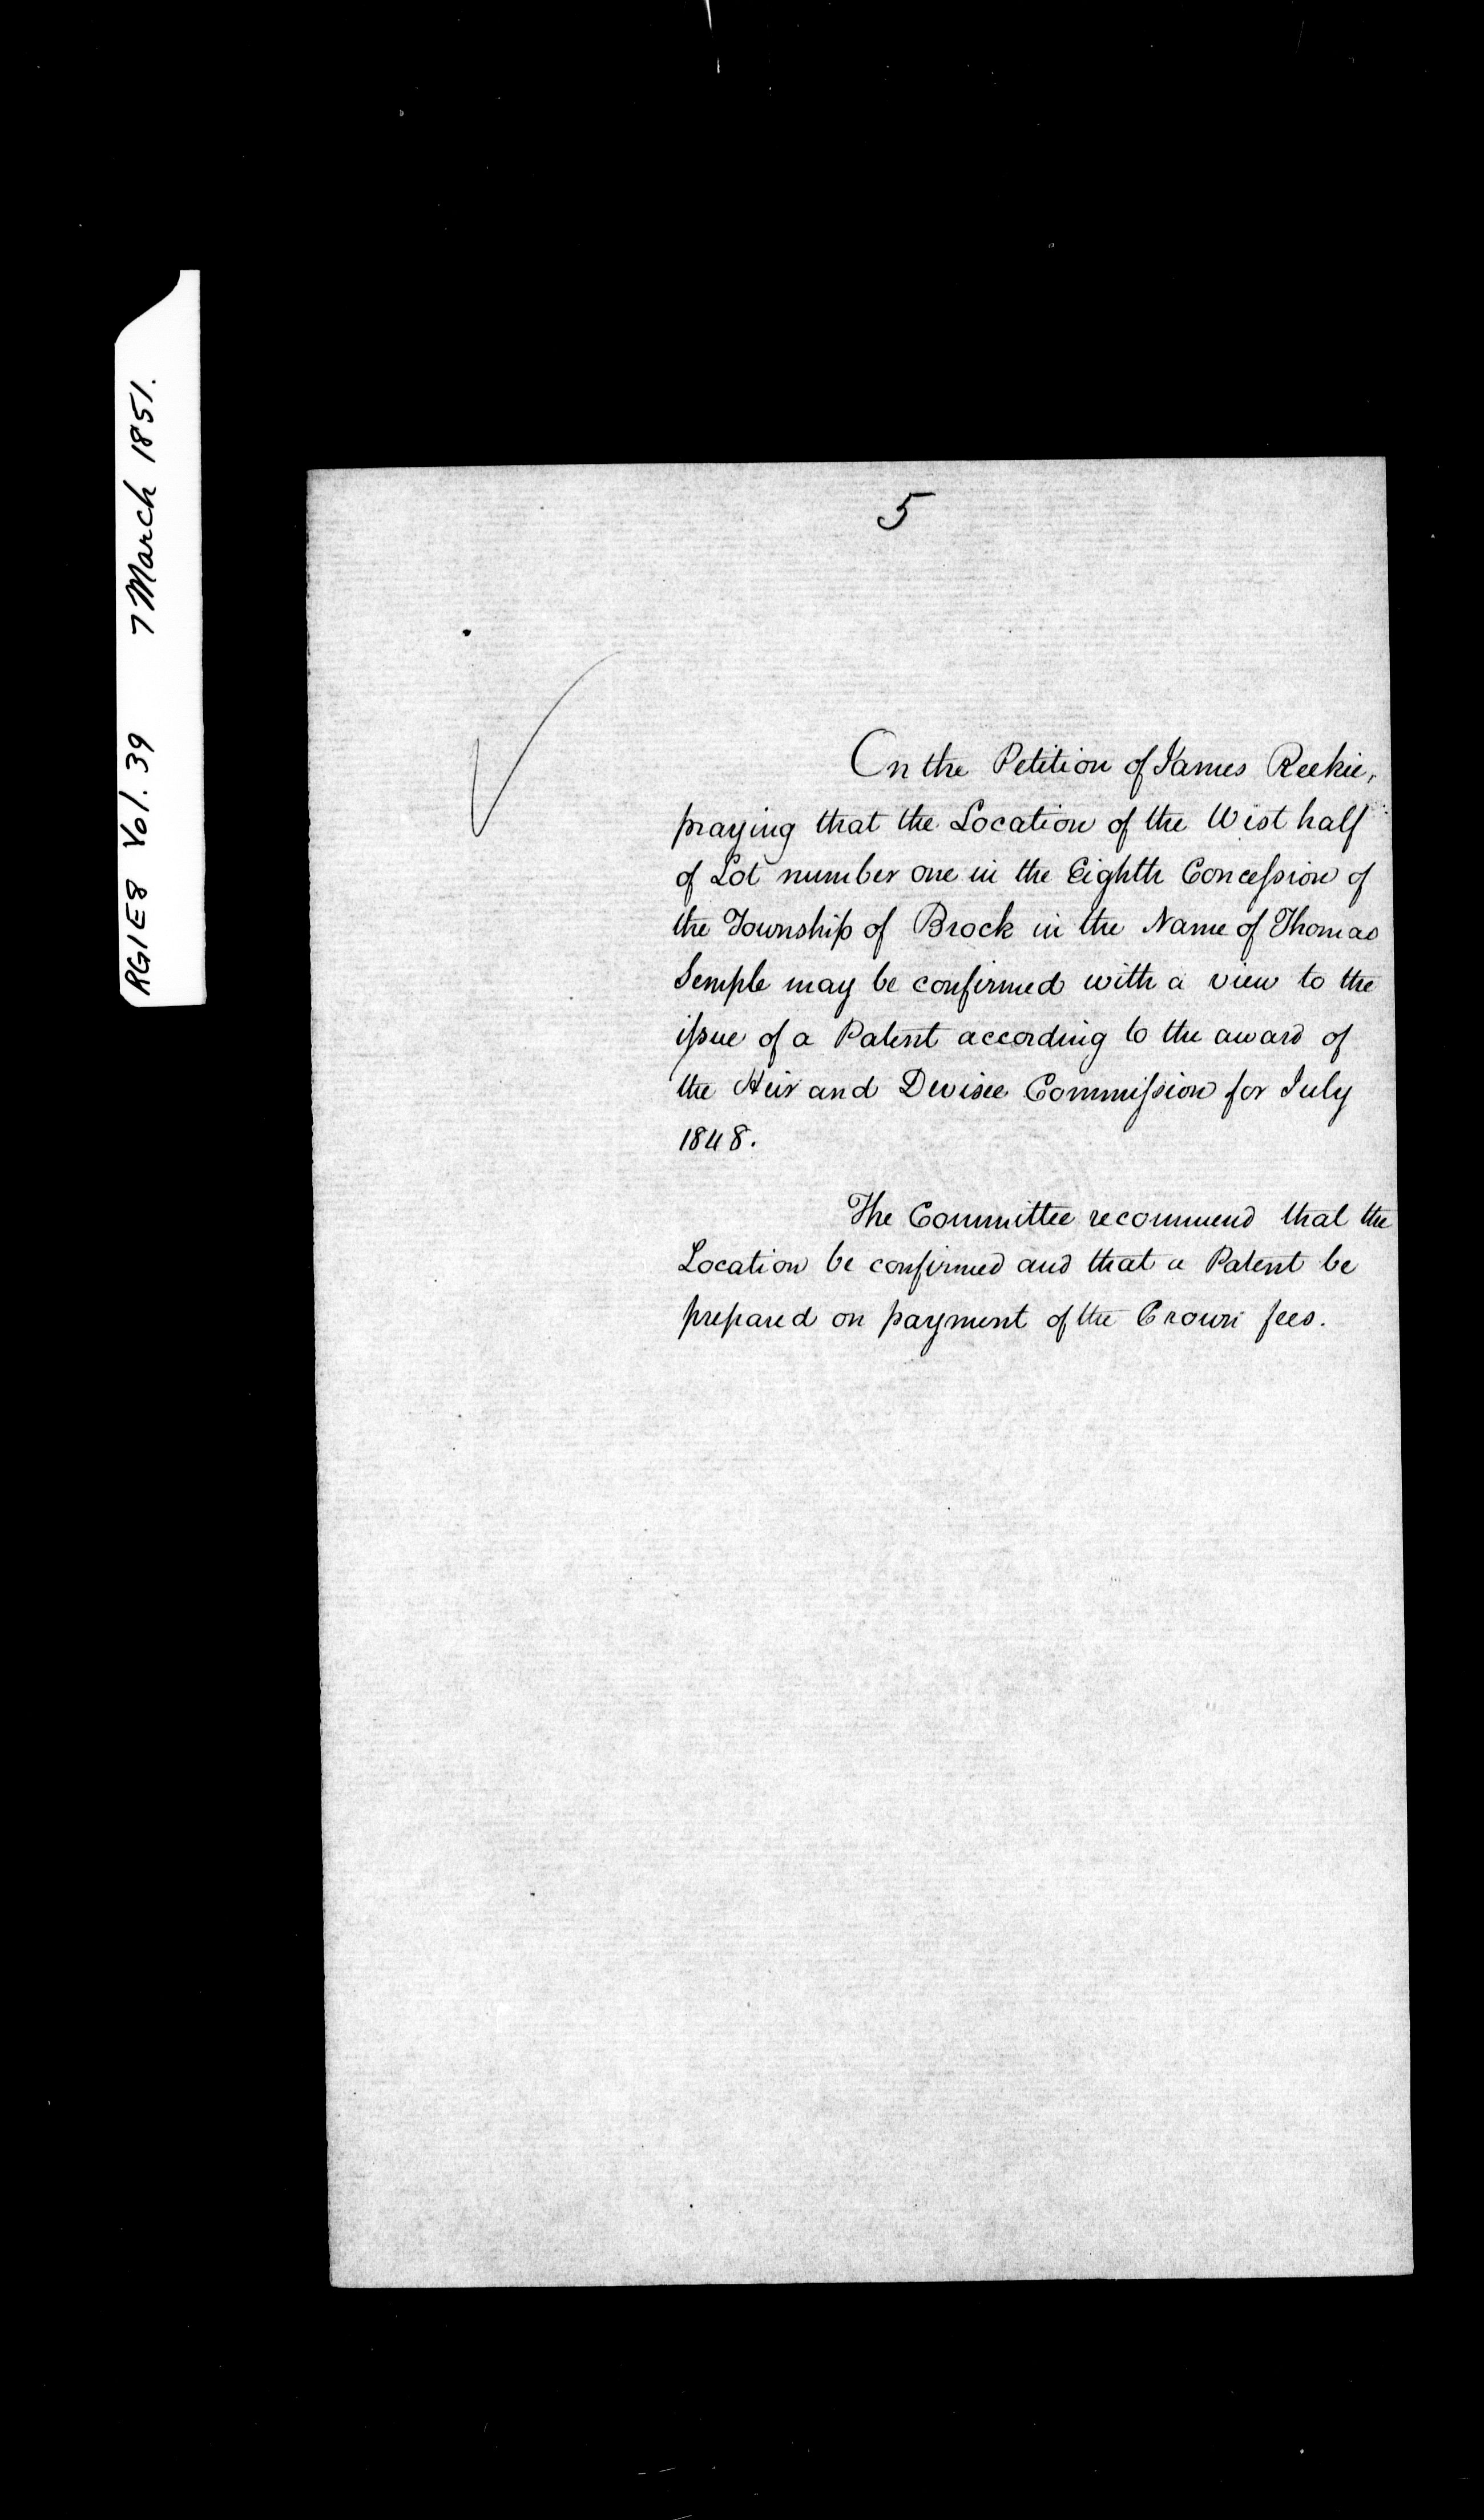 RG1E8 Vol. 39 7 March 1851.
5
On the Petition of James Reekie,
praying that the Location of the West half
of Lot number one in the Eighth Concession of
the Township of Brock in the Name of Thomas
Semple may be confirmed with a view to the
issue of a Patent according to the award of
the Heir and Devisee Commission for July
1848.
The Committee recommend that the
Location be confirmed and that a Patent be
prepared on payment of the Crown fees.